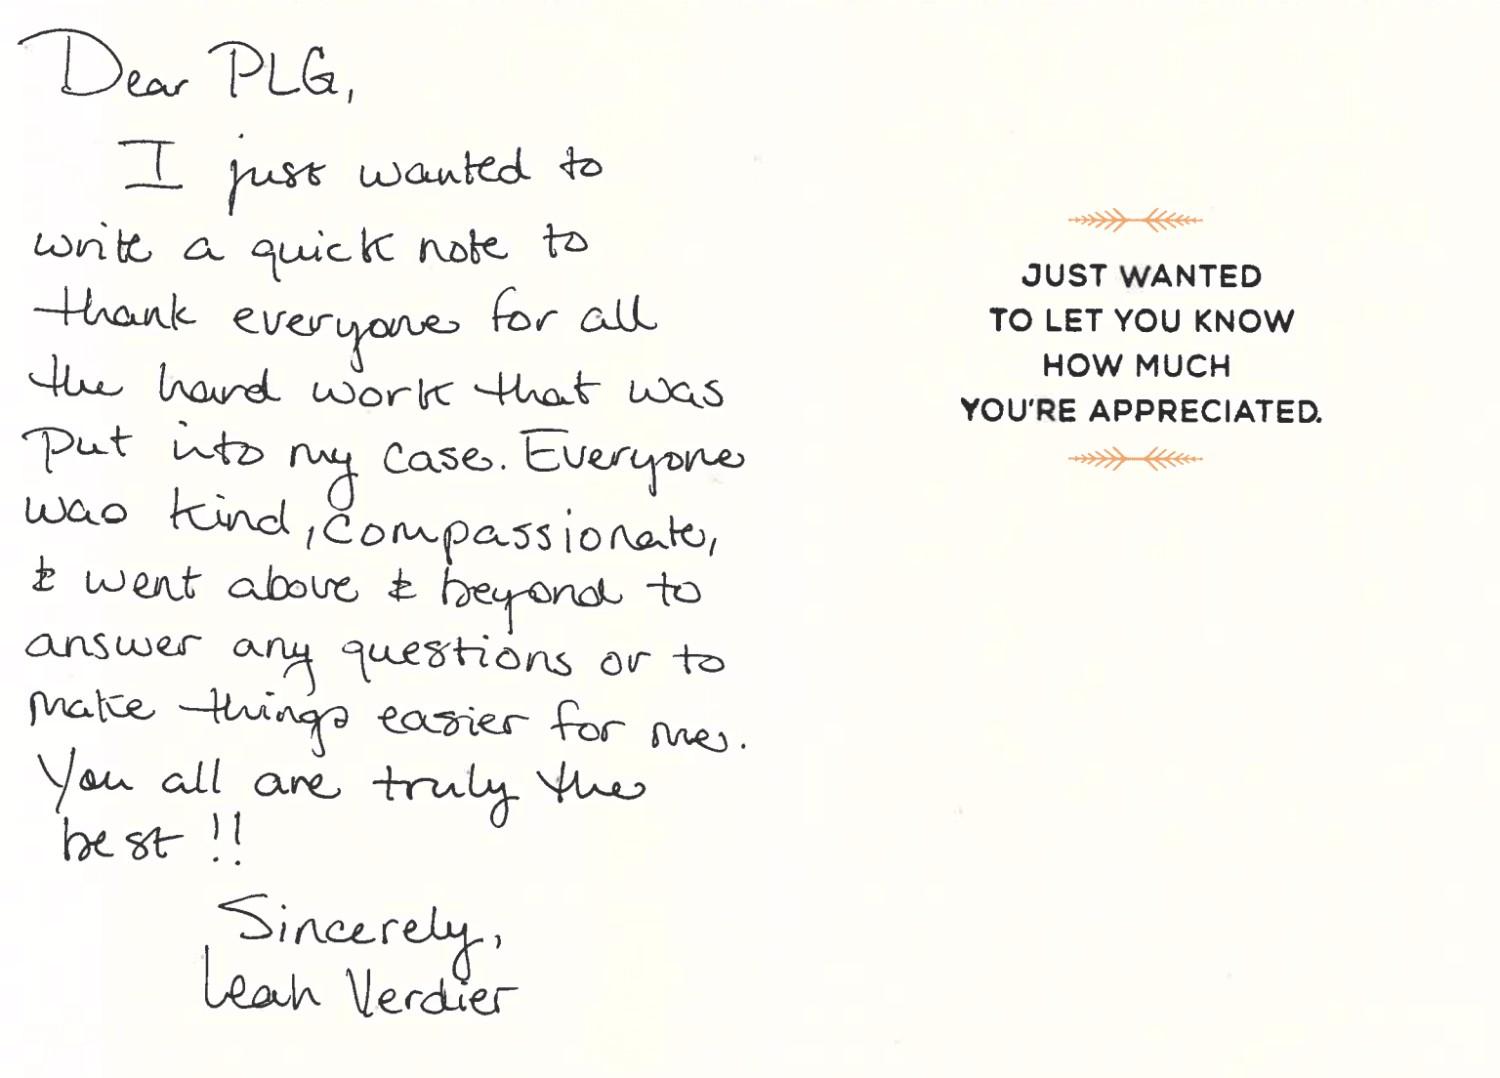 Dear PLG,
I just wanted to
write a quick note to
thank everyone for all
the hard work that was
put into my case. Everyone
was kind, compassionate,
& went above & beyond to
answer any questions or to
make things easier for me.
You all are truly the
best!!
Sincerely,
Leah Verdier
JUST WANTED
TO LET YOU KNOW
HOW MUCH
YOU'RE APPRECIATED.